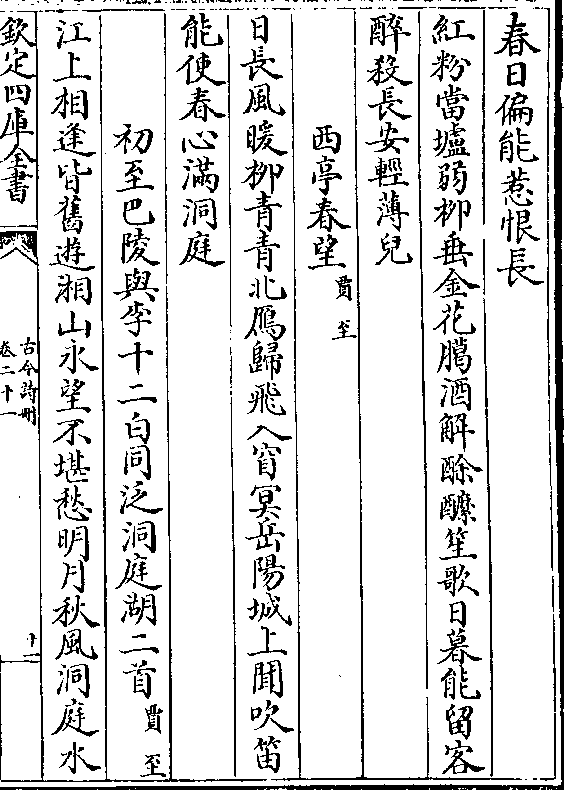 春日偏能惹恨長
紅粉當壚弱柳垂金花臈酒解酴醿笙歌日暮能留客
醉殺長安輕薄兒
西亭春望 賈至
日長風暖柳青青北鴈歸飛入窅冥岳陽城上聞吹笛
能使春心滿洞庭
初至巴陵與李十二白同泛洞庭湖二首 賈至
江上相逢皆舊遊湘山永望不堪愁明月秋風洞庭水
欽定四庫全書
古今詩刪
卷二十一
十一